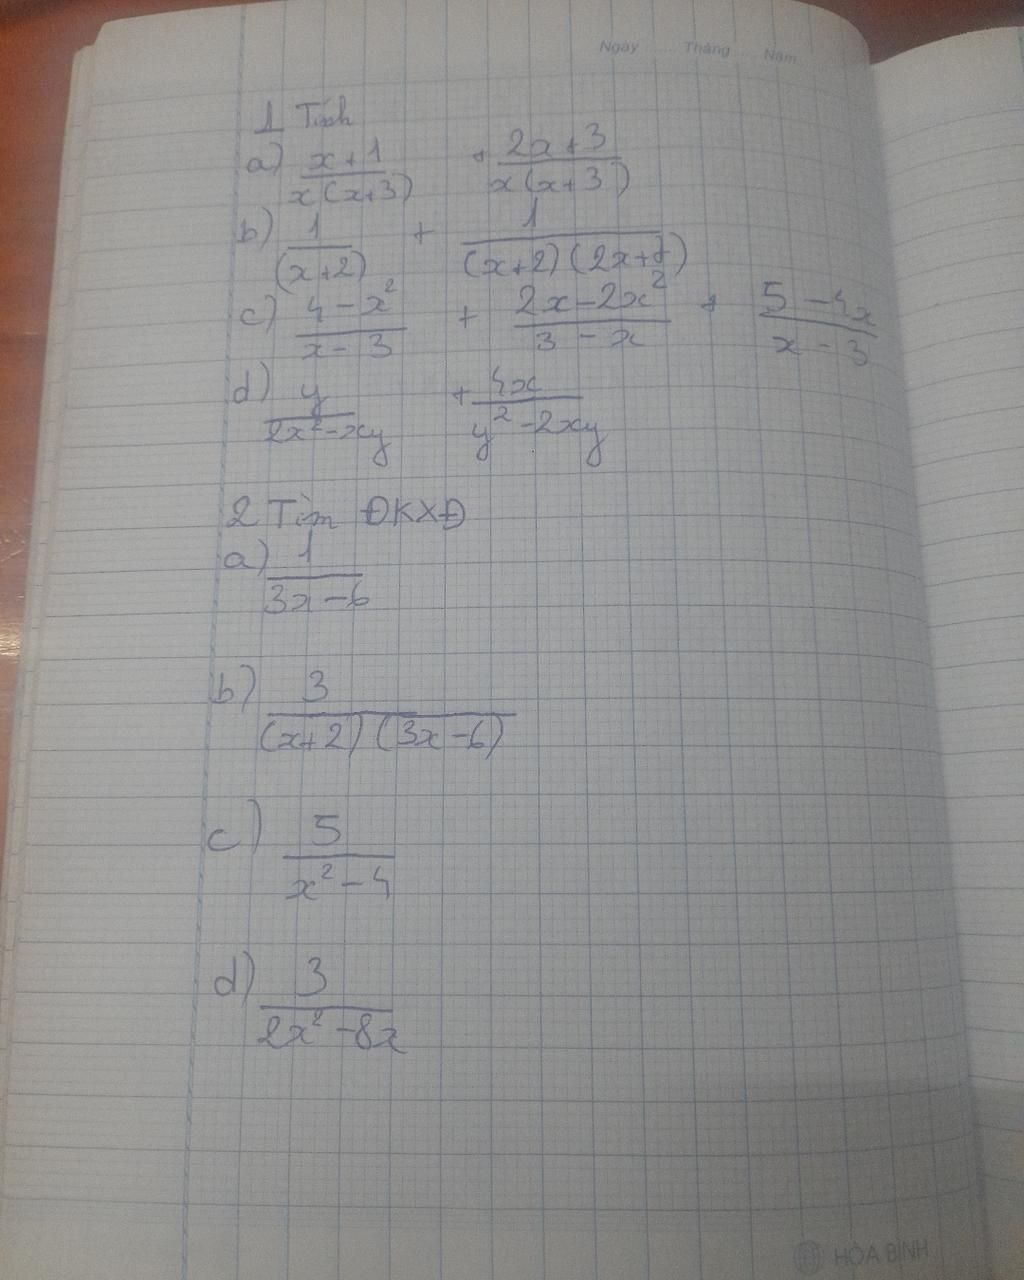 Ngày ...... Tháng ..... Năm
1 Tính
a) (x+1)/(x(x+3)) + (2x+3)/(x(x+3))
b) 1/(x+2) + 1/((x+2)(2x+
c) (4-x²)/(x-3) + (2x-2x²)/(3-x) + (5-4x)/(x-3)
d) y/(2x²-xy) + 4x/(y²-2xy)
2 Tìm ĐKXĐ
a) 1/(3x-6)
b) 3/((x+2)(3x-6))
c) 5/(x²-4)
d) 3/(2x²-8x)
HÒA BÌNH